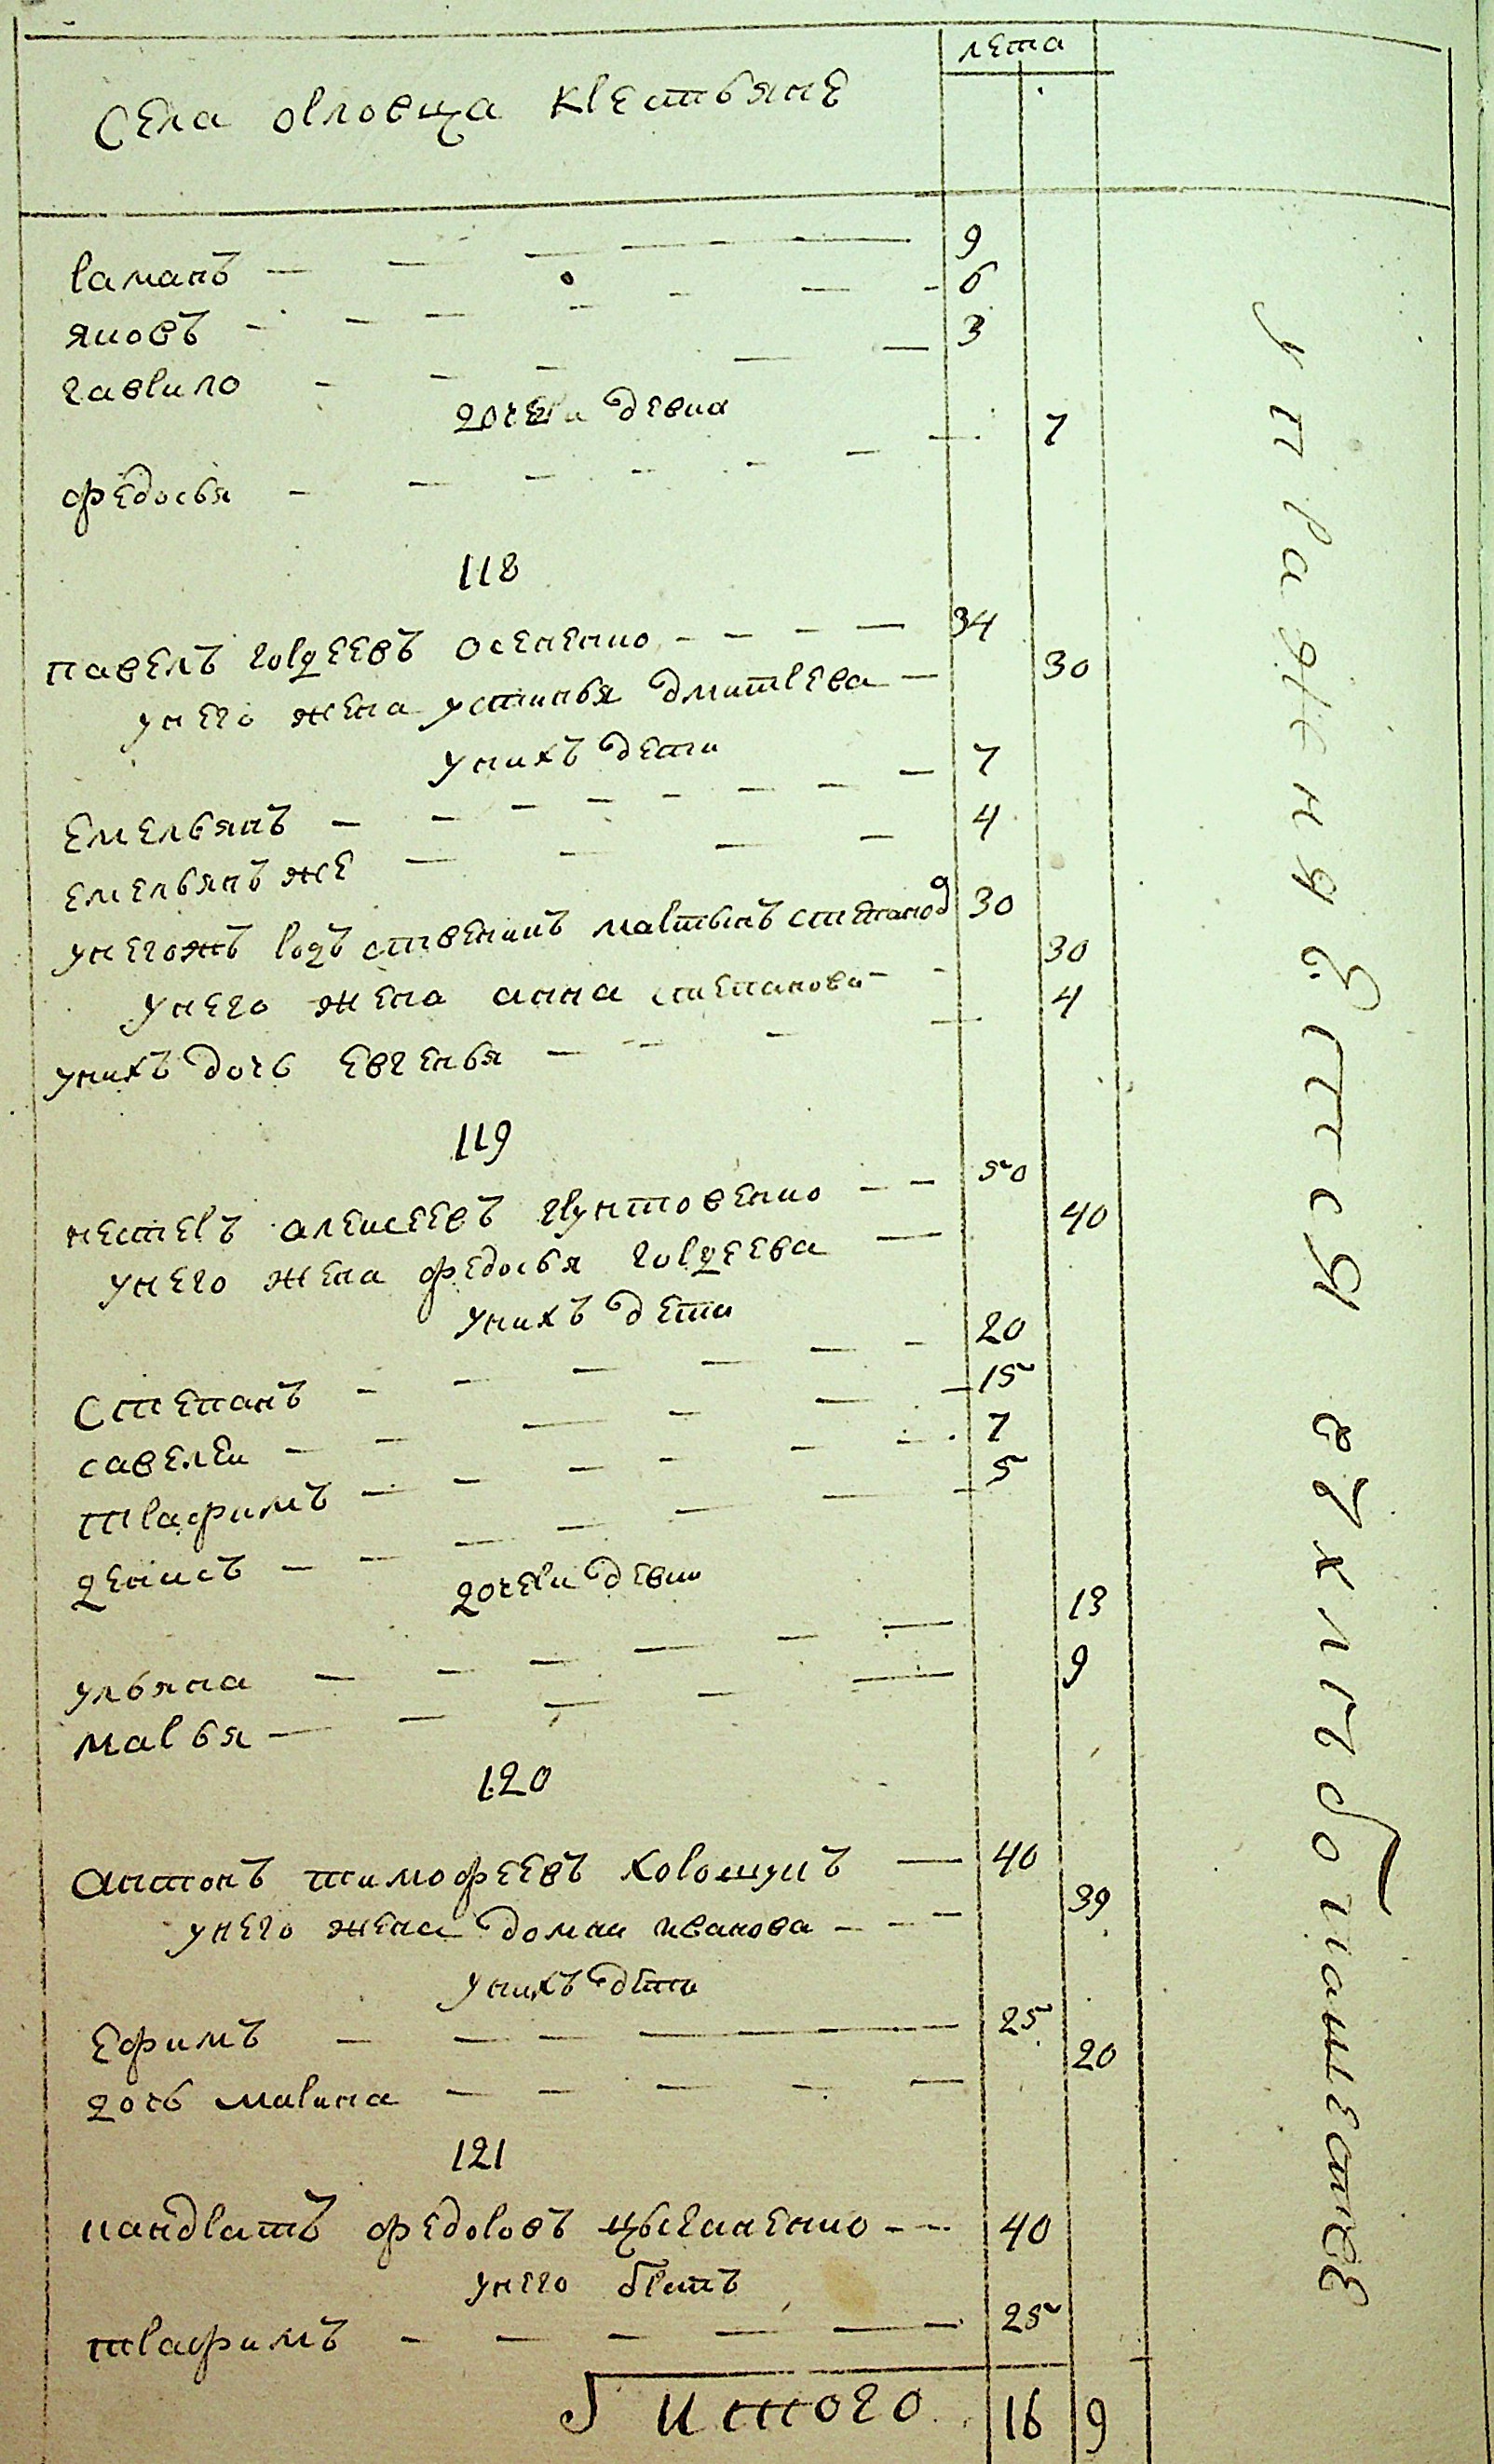 лета
Села орловца крестьяне
раманъ 9
яковъ 6
гаврило 3
дочери девки
федосья 7
118
павелъ гордеевъ осененко 34
унего жена устинья дмитрева 30
унихъ дети
Емельянъ 7
емельянъ же 4
унегожъ родъственикъ мартынъ степанов 30
унего жена анна степанова 30
унихъ дочь евгенья 4
119
нестеръ алексеевъ грунтовенко 50
унего жена федосья гордеева 40
унихъ дети
Степанъ 20
савелеи 15
трафимъ 7
денисъ 5
дочери девки
ульяна 13
марья 9
120
Антонъ тимофеевъ хорошунъ 40
унего жена домна иванова 39
унихъ дети
Ефимъ 25
дочь марина 20
121
кандратъ федоровъ цыганенко 40
унего братъ
трафимъ 25
итого 16 9
упражняются вхлебопашестве